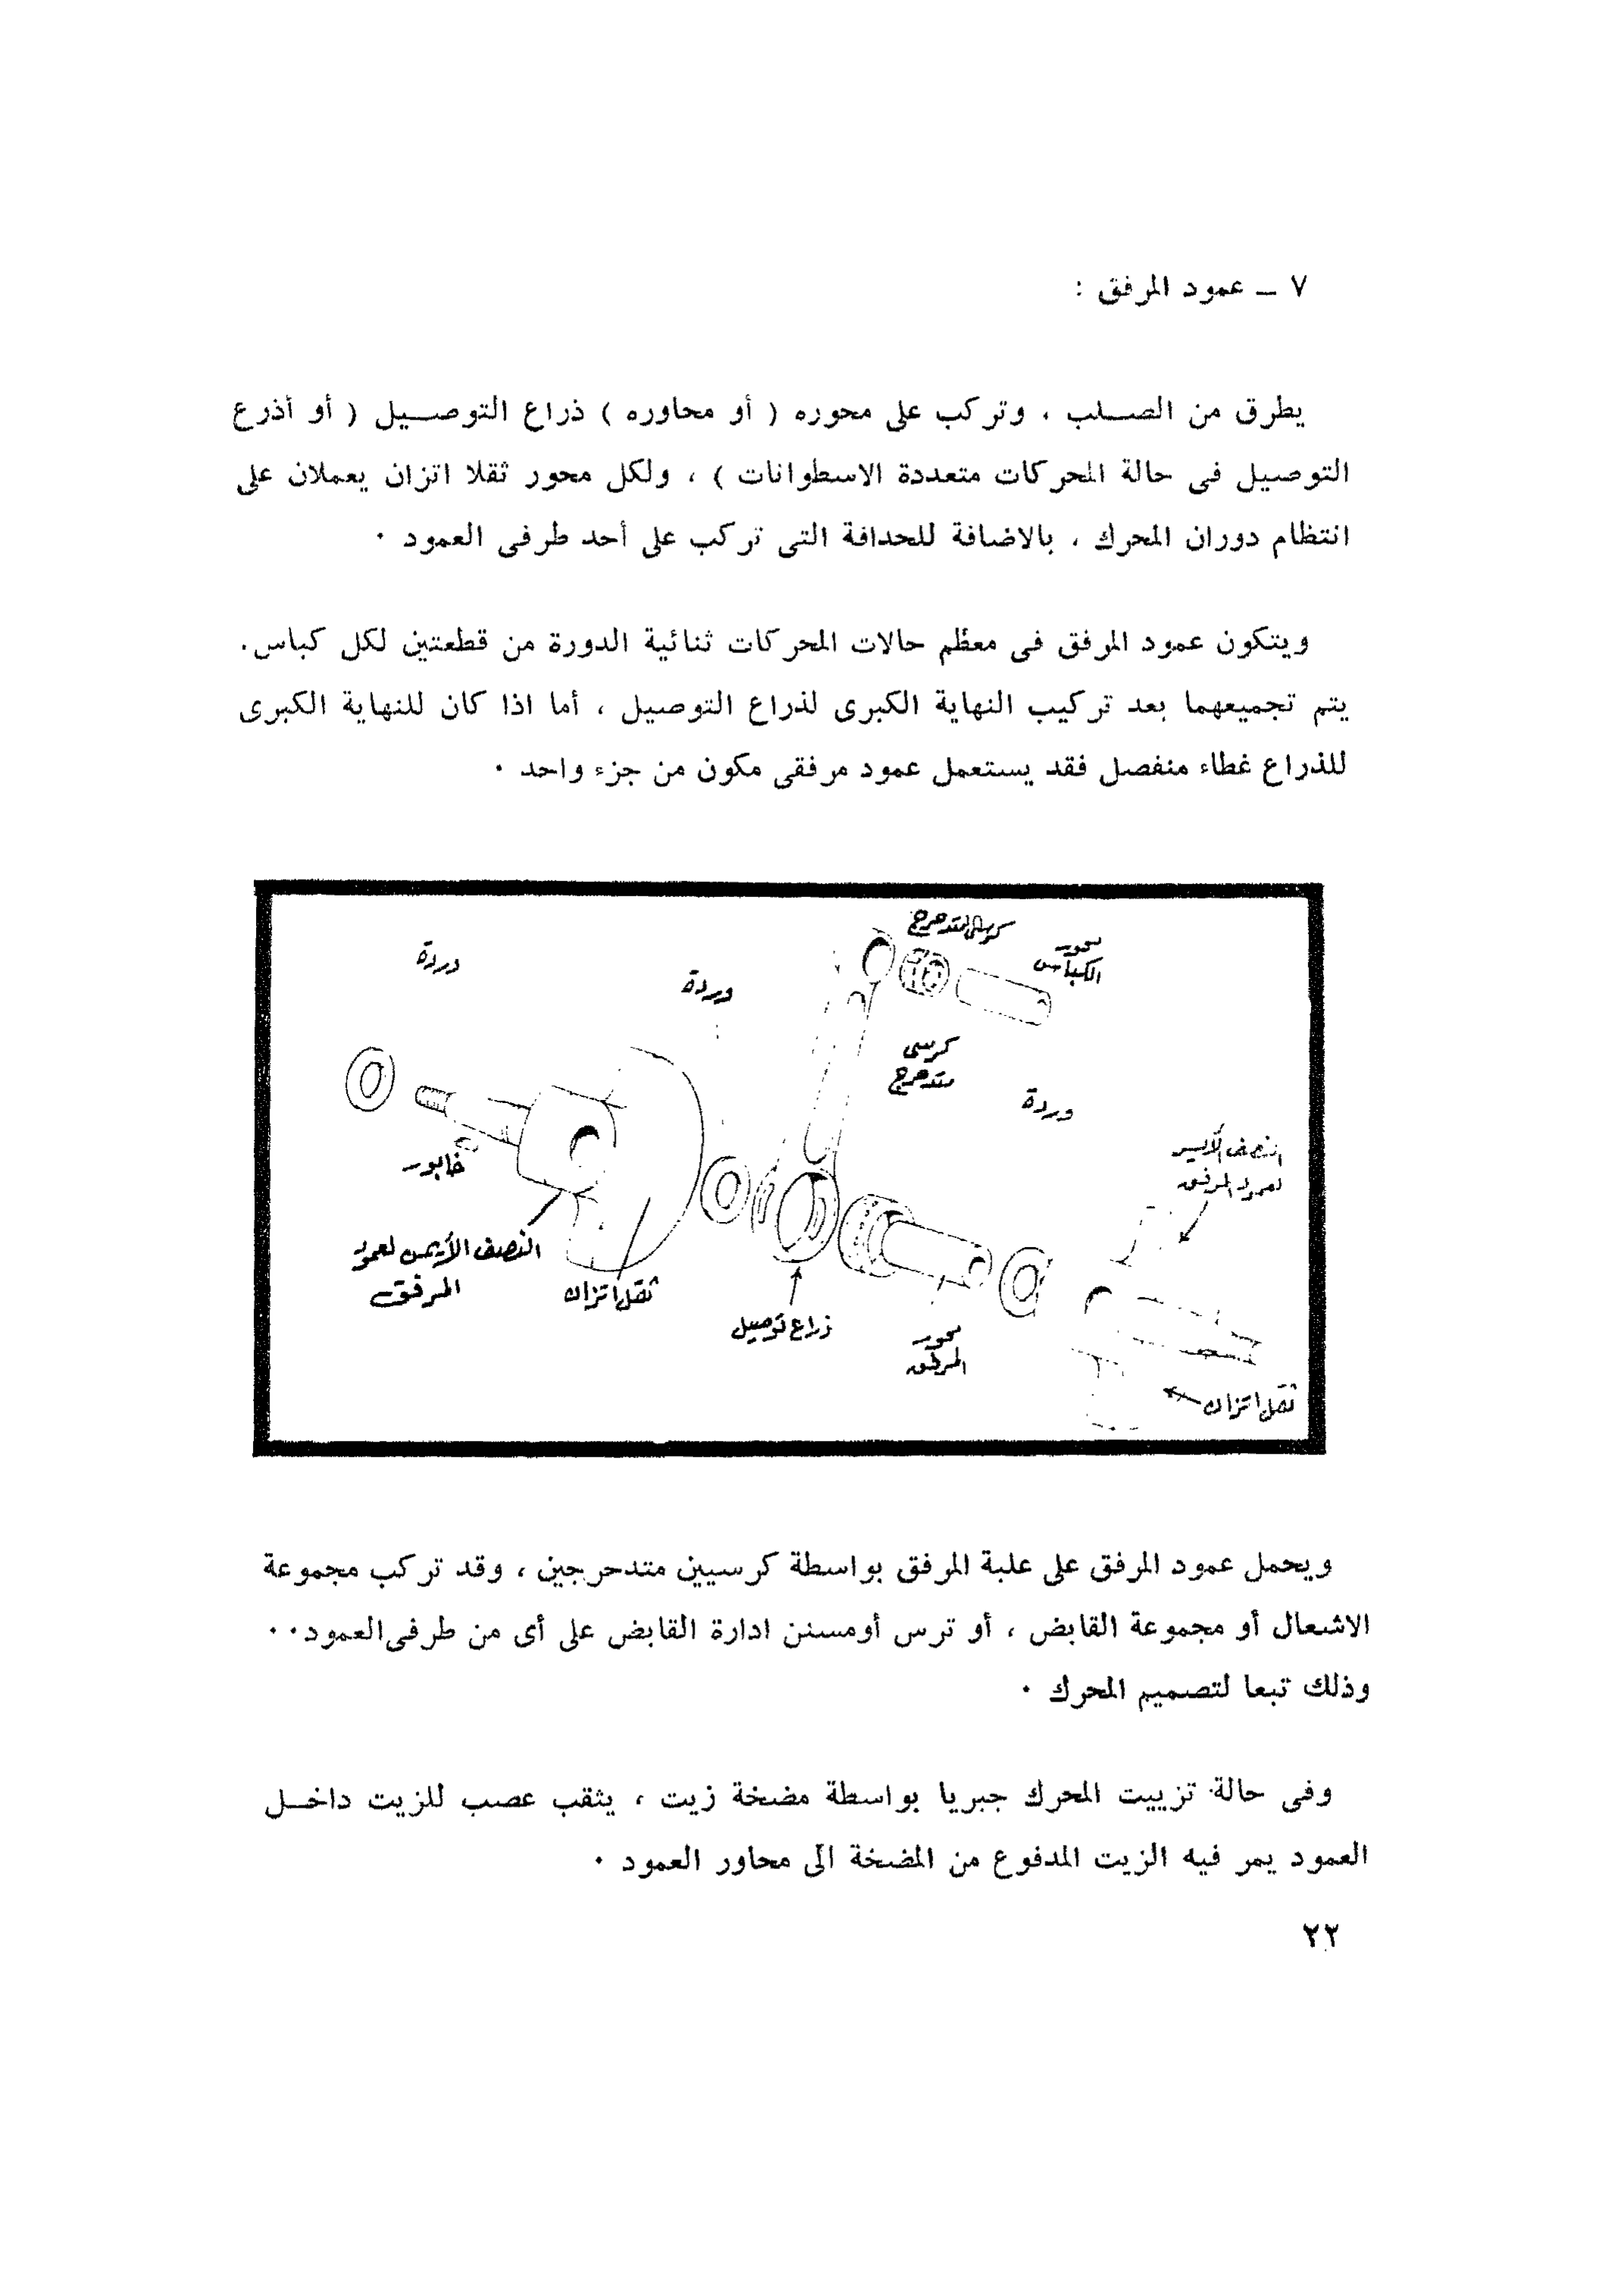 ٧ ـ عمود المرفق :
يطرق من الصلب ، وتركب على محوره ( أو محاوره ) ذراع التوصيل ( أو أذرع
التوصيل فى حالة المحركات متعددة الاسطوانات ) ، ولكل محور ثقلا اتزان يعملان على
انتظام دوران المحرك ، بالاضافة للحدافة التى تركب على أحد طرفى العمود ٠
ويتكون عمود المرفق فى معظم حالات المحركات ثنائية الدورة من قطعتين لكل كباس.
يتم تجميعهما بعد تركيب النهاية الكبرى لذراع التوصيل ، أما اذا كان للنهاية الكبرى
للذراع غطاء منفصل فقد يستعمل عمود مرفقى مكون من جزء واحد ٠
كرسى متدحرج
محور
الكباس
وردة
وردة
كرسى
متدحرج
وردة
النصف الأيسر
لعمود المرفق
خابور
النصف الأيمن لعمود
المرفق
ثقل اتزان
ذراع توصيل
محور
المرفق
ثقل اتزان
ويحمل عمود المرفق على علبة المرفق بواسطة كرسيين متدحرجين ، وقد تركب مجموعة
الاشعال أو مجموعة القابض ، أو ترس أومسنن ادارة القابض على أى من طرفى العمود٠٠
وذلك تبعا لتصميم المحرك ٠
وفى حالة تزييت المحرك جبريا بواسطة مضخة زيت ، يثقب عصب للزيت داخل
العمود يمر فيه الزيت المدفوع من المضخة الى محاور العمود ٠
٢٢